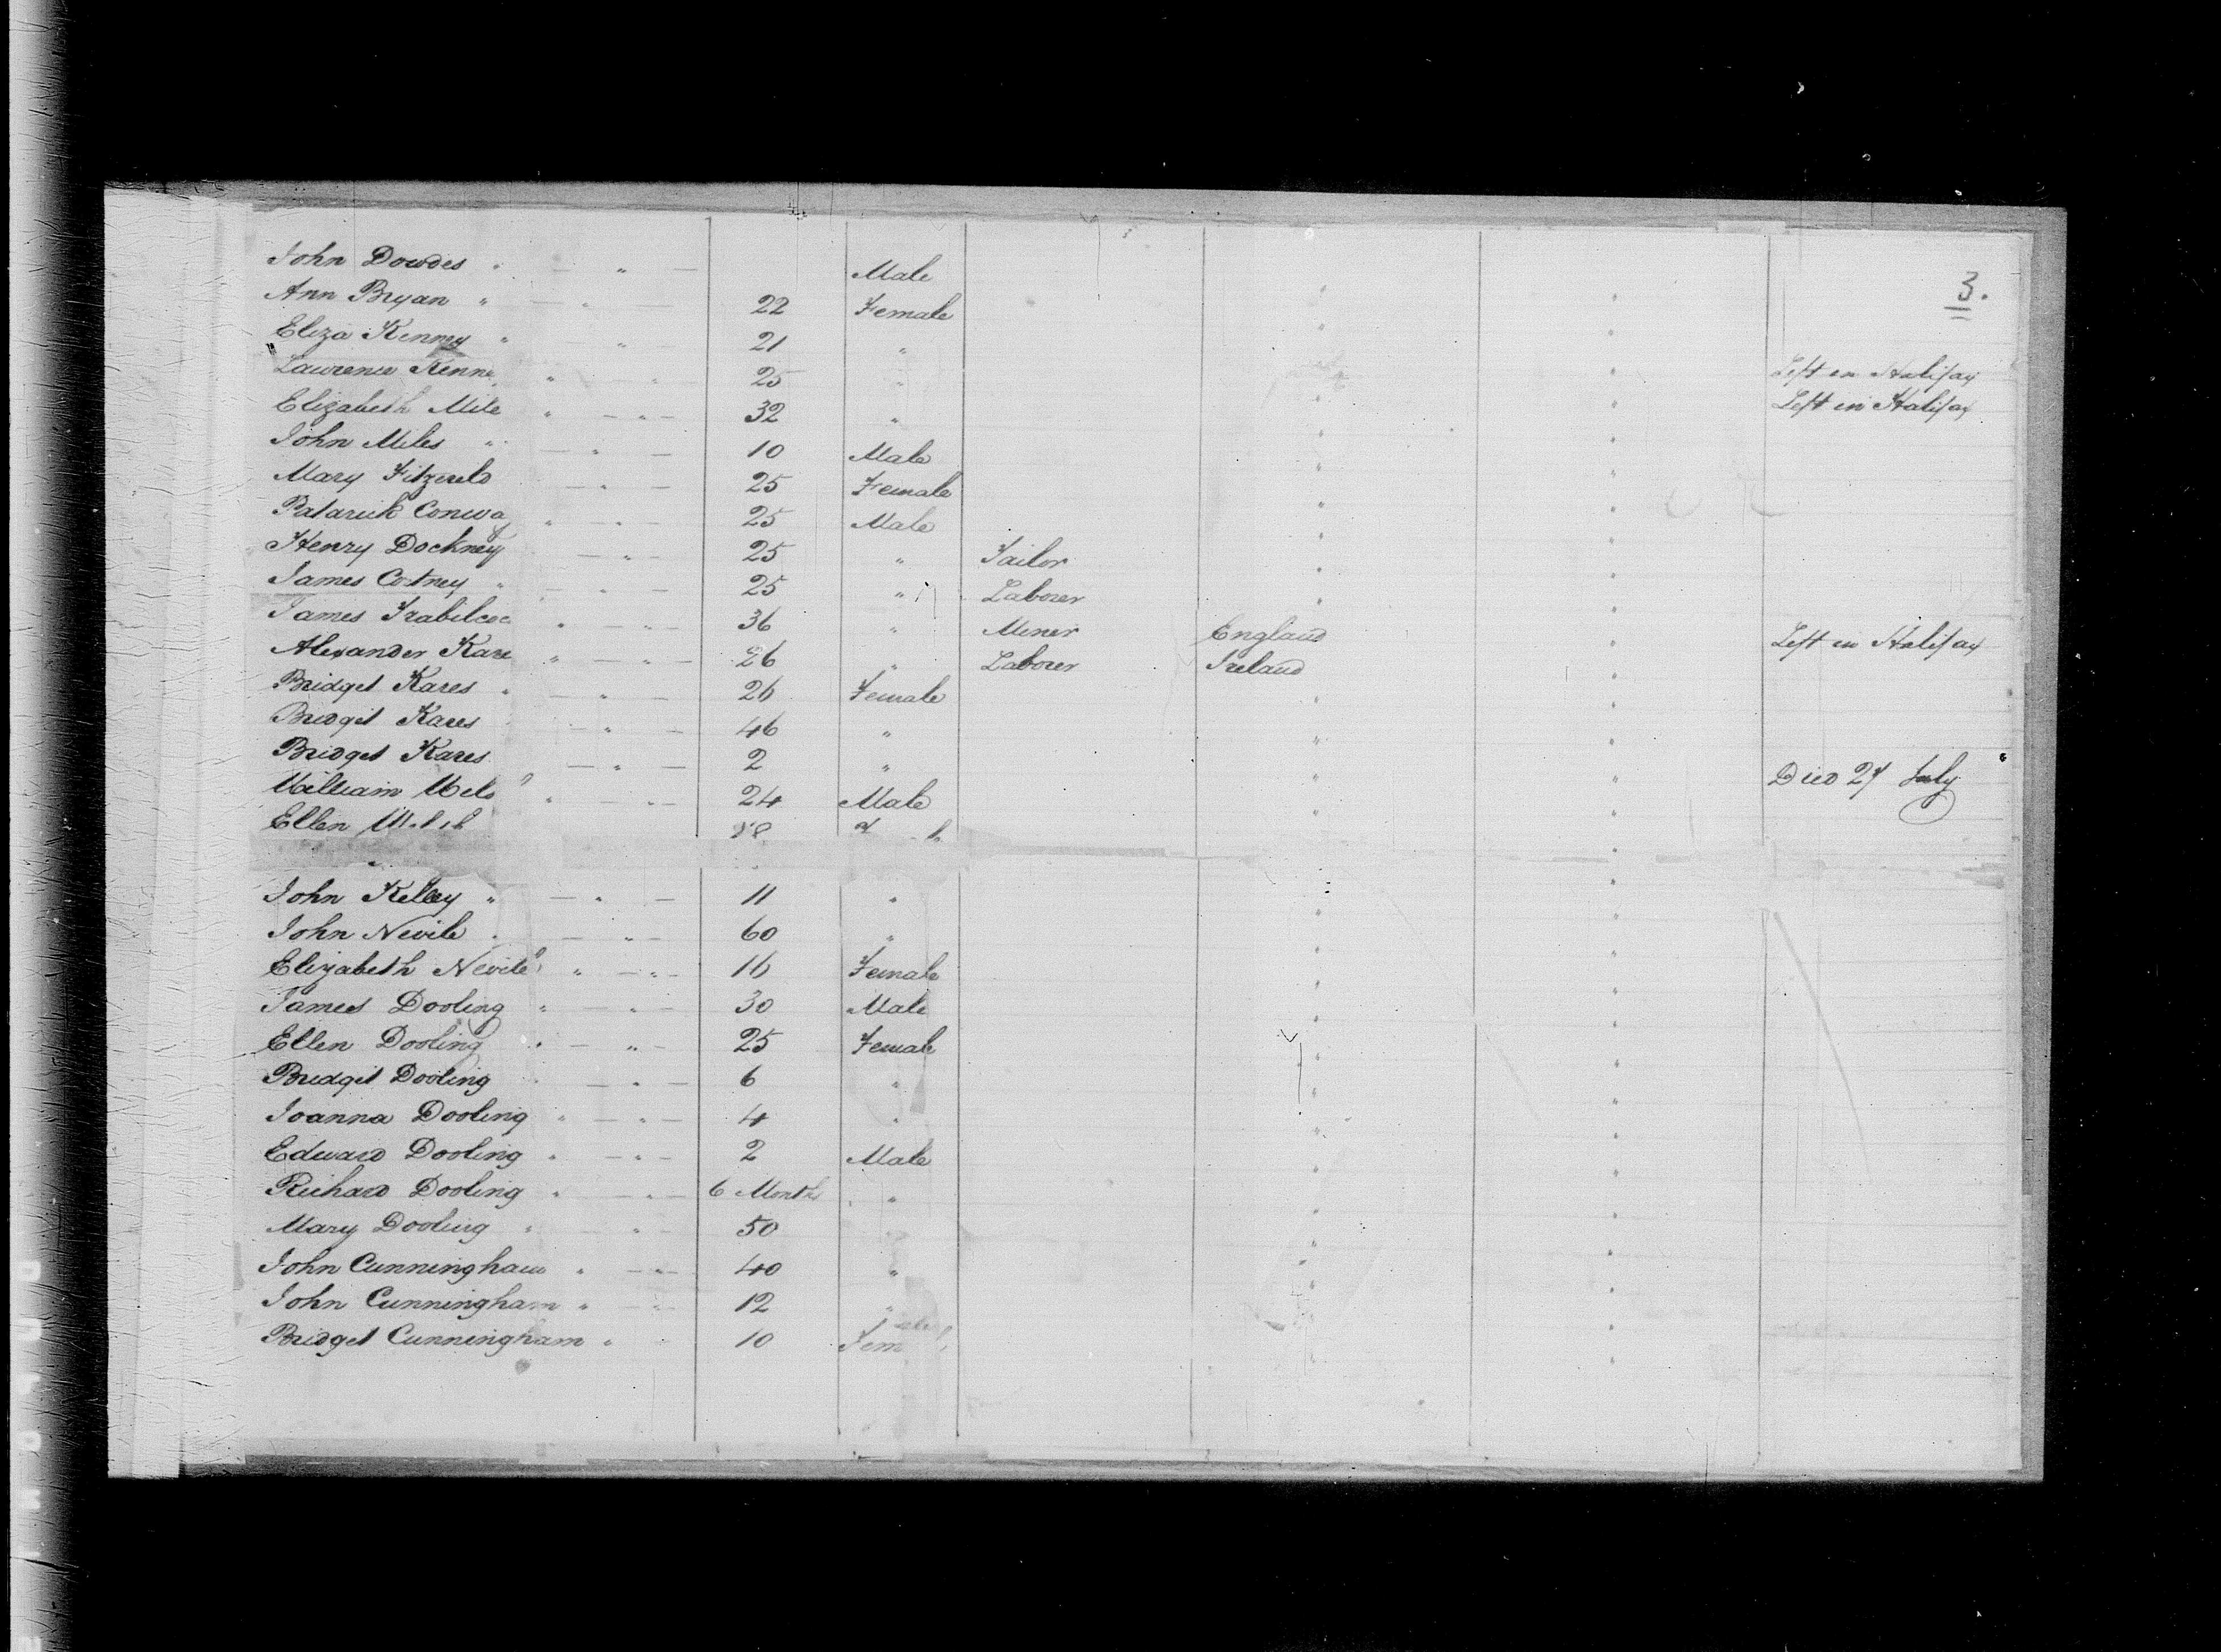 3.
John Dowdes " — " — Male
Ann Bryan " — " 22 Female " "
Eliza Kenny " " — 21 " " "
Lawrence Kenne " — " — 25 " " " Left in Halifax
Elizabeth Mile " — " — 32 " " " Left in Halifax
John Miles " — " — 10 Male " "
Mary Fitzereld — " — 25 Female " "
Patarick Conway " — " — 25 Male " "
Henry Dockney — " — 25 " Tailor " "
James Cotney " — " — 25 " Laborer " "
James Trabilcoc " — " — 36 " Miner England " Left in Halifax
Alexander Kare " — " — 26 " Laborer Ireland "
Bridget Kares " — " — 26 Female " "
Bridget Kares — " — 46 " " "
Bridget Kares — " — 2 " " " Died 27 July
William " — " — 24 Male " "
Ellen
John Kelley " — " — 11 " " "
John Nevile " — " — 60 " " "
Elizabeth Nevile " — " — 16 Female " "
James Dooling " — " — 30 Male " "
Ellen Dooling " — " — 25 Female " "
Bridget Dooling " — " — 6 " " "
Joanna Dooling " — " — 4 " " "
Edward Dooling " — " — 2 Male " "
Richard Dooling " — " — 6 Months " " "
Mary Dooling " — " — 50 " "
John Cunningham " — " — 40 " " "
John Cunningham " — " — 12 " " "
Bridget Cunningham " 10 Fem " "